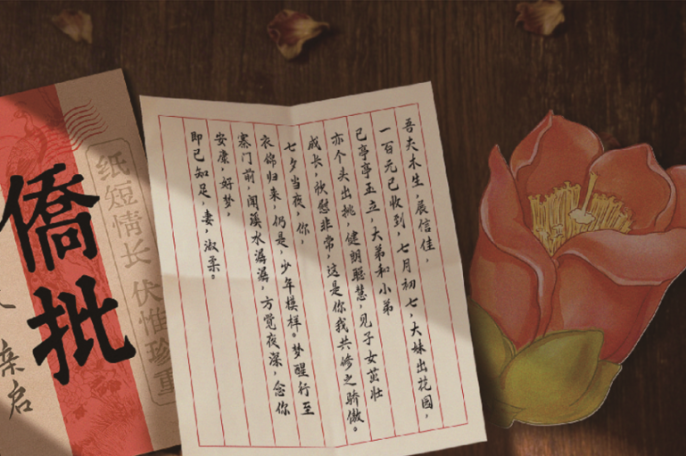 吾夫木生，展信佳，
一百元已收到，七月初七，大妹出花园，
已亭亭玉立，大弟和小弟
亦个头出挑，健朗聪慧，见子女茁壮
成长，欣慰非常，这是你我共修之骄傲。
七夕当夜，你，
衣锦归来，仍是，少年模样。梦醒行至
寨门前，闻溪水潺潺，方觉夜深，念你
安康，好梦，
即已知足，妻，淑柔。
僑批
纸短情长 伏惟珍重
亲启